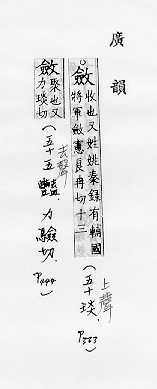 廣韻
斂 收也又姓姚秦錄有輔國
將軍斂憲良冉切十三
上聲
(五十琰, P333)
斂 聚也又
力琰切
去聲
(五十五豔, 力驗切, P444)